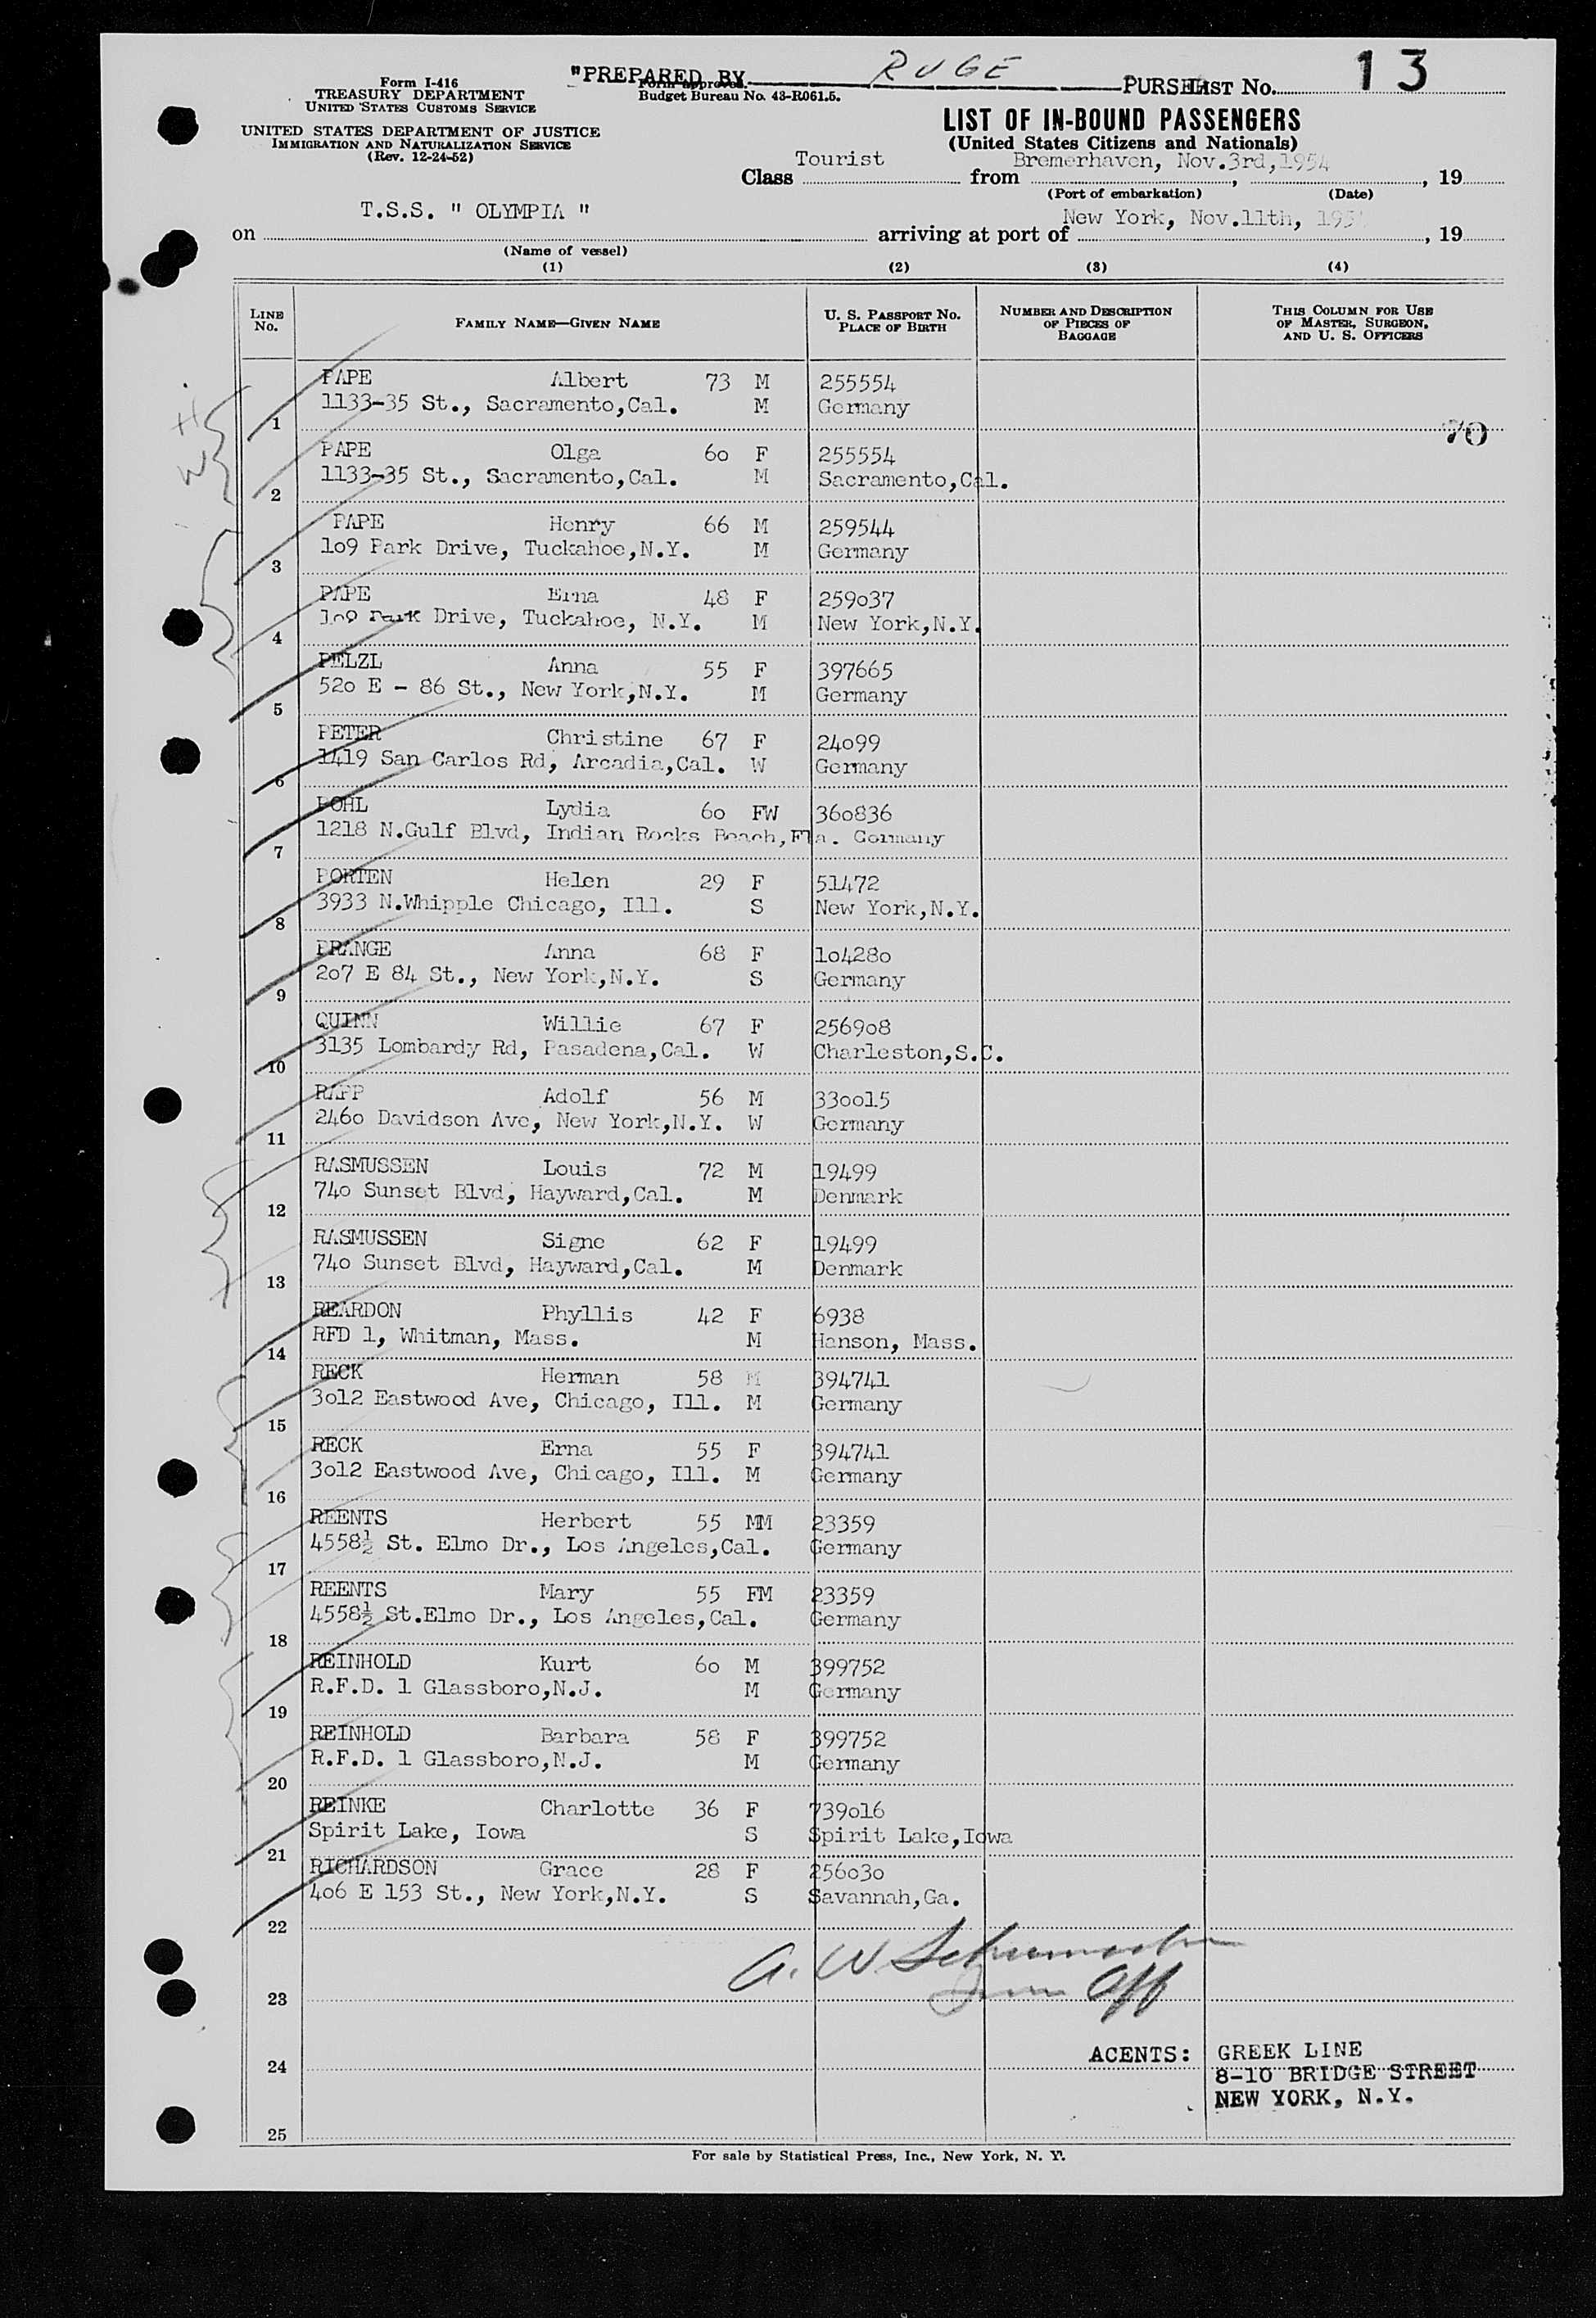 Form I-416
TREASURY DEPARTMENT
UNITED STATES CUSTOMS SERVICE
UNITED STATES DEPARTMENT OF JUSTICE
IMMIGRATION AND NATURALIZATION SERVICE
(Rev. 12-24-52)
"PREPARED BY RUGE PURSER
Form approved.
Budget Bureau No. 43-R061.5.
List No. 13
LIST OF IN-BOUND PASSENGERS
(United States Citizens and Nationals)
Class Tourist from Bremerhaven, Nov.3rd,1954, 19
(Port of embarkation) (Date)
on T.S.S. " OLYMPIA " arriving at port of New York, Nov.11th, 195, 19
(Name of vessel)
(1) (2) (3) (4)
LINE No. FAMILY NAME—GIVEN NAME U. S. PASSPORT No. PLACE OF BIRTH NUMBER AND DESCRIPTION OF PIECES OF BAGGAGE THIS COLUMN FOR USE OF MASTER, SURGEON, AND U. S. OFFICERS
PAPE Albert 73 M 255554
1133-35 St., Sacramento,Cal. M Germany
1 70
PAPE Olga 6o F 255554
1133-35 St., Sacramento,Cal. M Sacramento,Cal.
2
PAPE Henry 66 M 259544
1o9 Park Drive, Tuckahoe,N.Y. M Germany
3
PAPE Erna 48 F 259o37
1o9 Park Drive, Tuckahoe, N.Y. M New York,N.Y.
4
PELZL Anna 55 F 397665
52o E - 86 St., New York,N.Y. M Germany
5
PETER Christine 67 F 24o99
1419 San Carlos Rd, Arcadia,Cal. W Germany
6
POHL Lydia 6o FW 36o836
1218 N.Gulf Blvd, Indian Rocks Beach,Fla. Germany
7
PORTEN Helen 29 F 51472
3933 N.Whipple Chicago, Ill. S New York,N.Y.
8
PRANGE Anna 68 F 1o428o
2o7 E 84 St., New York,N.Y. S Germany
9
QUINN Willie 67 F 2569o8
3135 Lombardy Rd, Pasadena,Cal. W Charleston,S.C.
10
RAPP Adolf 56 M 33oo15
246o Davidson Ave, New York,N.Y. W Germany
11
RASMUSSEN Louis 72 M 19499
74o Sunset Blvd, Hayward,Cal. M Denmark
12
RASMUSSEN Signe 62 F 19499
74o Sunset Blvd, Hayward,Cal. M Denmark
13
REARDON Phyllis 42 F 6938
RFD 1, Whitman, Mass. M Hanson, Mass.
14
RECK Herman 58 M 394741
3o12 Eastwood Ave, Chicago, Ill. M Germany
15
RECK Erna 55 F 394741
3o12 Eastwood Ave, Chicago, Ill. M Germany
16
REENTS Herbert 55 MM 23359
4558½ St. Elmo Dr., Los Angeles,Cal. Germany
17
REENTS Mary 55 FM 23359
4558½ St.Elmo Dr., Los Angeles,Cal. Germany
18
REINHOLD Kurt 6o M 399752
R.F.D. 1 Glassboro,N.J. M Germany
19
REINHOLD Barbara 58 F 399752
R.F.D. 1 Glassboro,N.J. M Germany
20
REINKE Charlotte 36 F 739o16
Spirit Lake, Iowa S Spirit Lake,Iowa
21
RICHARDSON Grace 28 F 256o3o
4o6 E 153 St., New York,N.Y. S Savannah,Ga.
22
A. W.
23 Off
24 ACENTS: GREEK LINE
8-10 BRIDGE STREET
NEW YORK, N.Y.
25
For sale by Statistical Press, Inc., New York, N. Y.